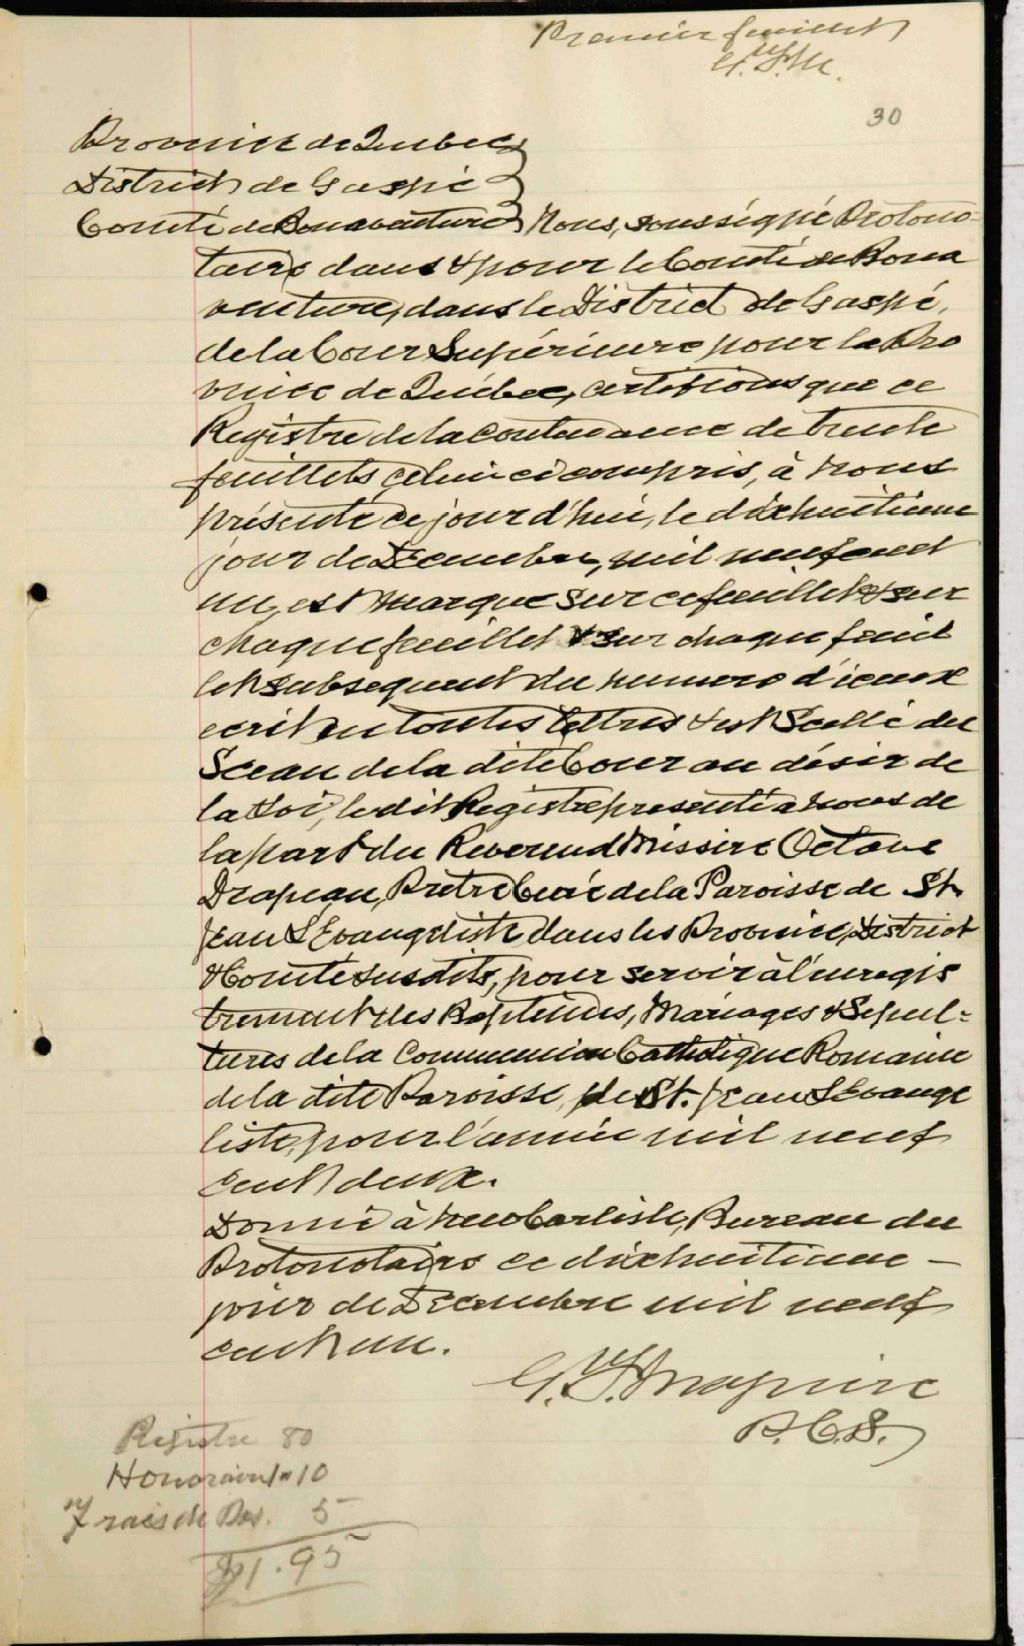 Premier feuillet
G.S.M.
30
Province de Quebec
District de Gaspé
Comté de Bonaventure } Nous, soussigné Protono-
taire dans & pour le Comté de Bona
venture, dans le District de Gaspé,
de la Cour Supérieure pour la Pro
vince de Québec, certifions que ce
Registre de la contenance de trente
feuillets celui ci compris, à nous
présenté ce jour d'hui, le dixhuitieme
jour de Decembre, mil neuf cent
un, est marque sur ce feuillet & sur
chaque feuillet & sur chaque feuil
let subsequent du numero d'iceux
ecrit en toutes lettres & est Scellé du
Sceau de la dite Cour au désir de
la Loi, le dit Registre presenté a nous de
la part du Reverend Missire Octave
Drapeau, Pretre Curé de la Paroisse de St.
Jean L'Evangeliste dans les Province, District
& Comté susdits, pour servir à l'enregis
trement des Baptemes, Mariages & Sepul-
tures de la Communion Catholique Romaine
de la dite Paroisse, de St. Jean L'Evange
liste, pour l'année mil neuf
cent deux.
Donné à New Carlisle, Bureau du
Protonotaire ce dixhuitieme —
jour de Decembre mil neuf
cent un.
G.S. Maguire
P.C.S.
Registre 80
Honoraire 1 " 10
Frais de Dep. 5
$1.95